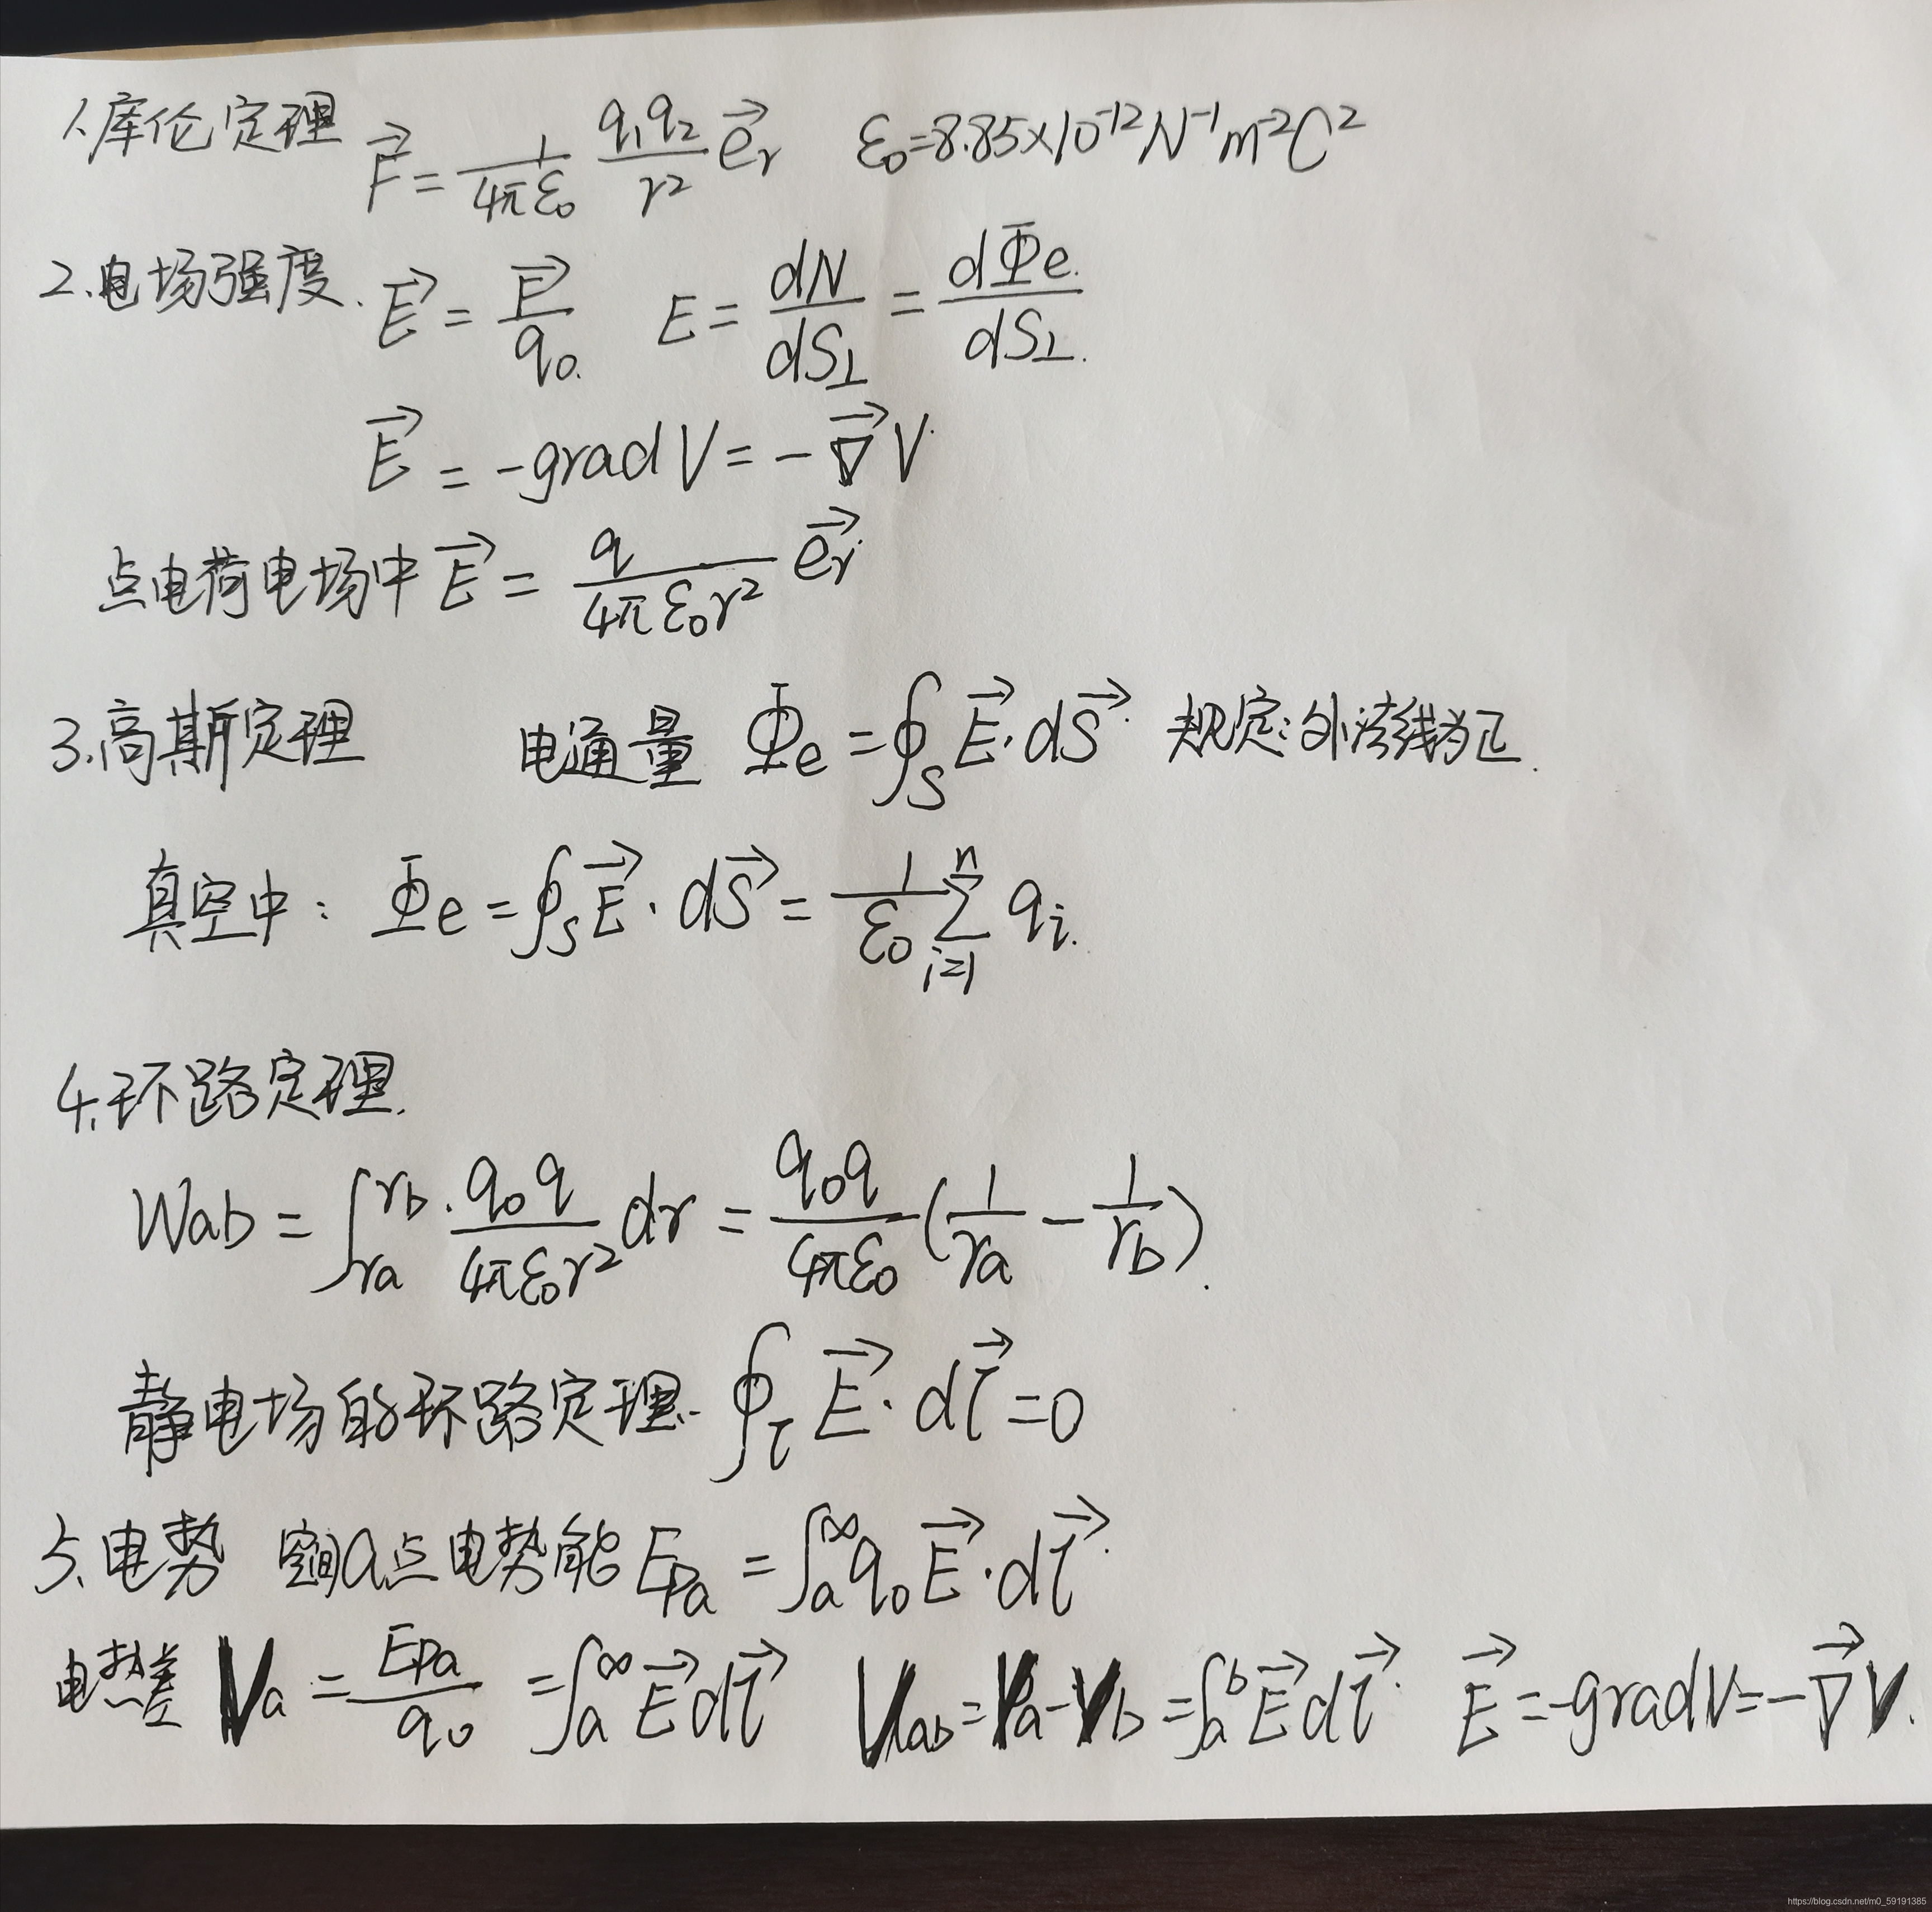 1.库伦定理 $\vec{F}=\frac{1}{4\pi\varepsilon_0}\frac{q_1q_2}{r^2}\vec{e}_r$ $\varepsilon_0=8.85\times10^{-12}N^{-1}m^{-2}C^2$
2.电场强度. $\vec{E}=\frac{\vec{F}}{q_0}$ $E=\frac{dN}{dS_\perp}=\frac{d\Phi e}{dS_\perp}$
$\vec{E}=-gradV=-\vec{\nabla}V$
点电荷电场中 $\vec{E}=\frac{q}{4\pi\varepsilon_0r^2}\vec{e_r}$
3.高斯定理 电通量 $\Phi_e=\oint_S\vec{E}\cdot d\vec{S}$ 规定:外法线为正.
真空中: $\Phi e=\oint_S\vec{E}\cdot d\vec{S}=\frac{1}{\varepsilon_0}\sum_{i=1}^{n}q_i$
4.环路定理.
$W_{ab}=\int_{r_a}^{r_b}\frac{q_0q}{4\pi\varepsilon_0r^2}dr=\frac{q_0q}{4\pi\varepsilon_0}(\frac{1}{r_a}-\frac{1}{r_b})$.
静电场的环路定理. $\oint_l\vec{E}\cdot d\vec{l}=0$
5.电势 空间a点电势能 $E_{Pa}=\int_a^\infty q_0\vec{E}\cdot d\vec{l}$
电势差 $V_a=\frac{E_{Pa}}{q_0}=\int_a^\infty\vec{E}d\vec{l}$ $V_{ab}=V_a-V_b=\int_a^b\vec{E}d\vec{l}$ $\vec{E}=-gradV=-\vec{\nabla}V$.
https://blog.csdn.net/m0_59191385